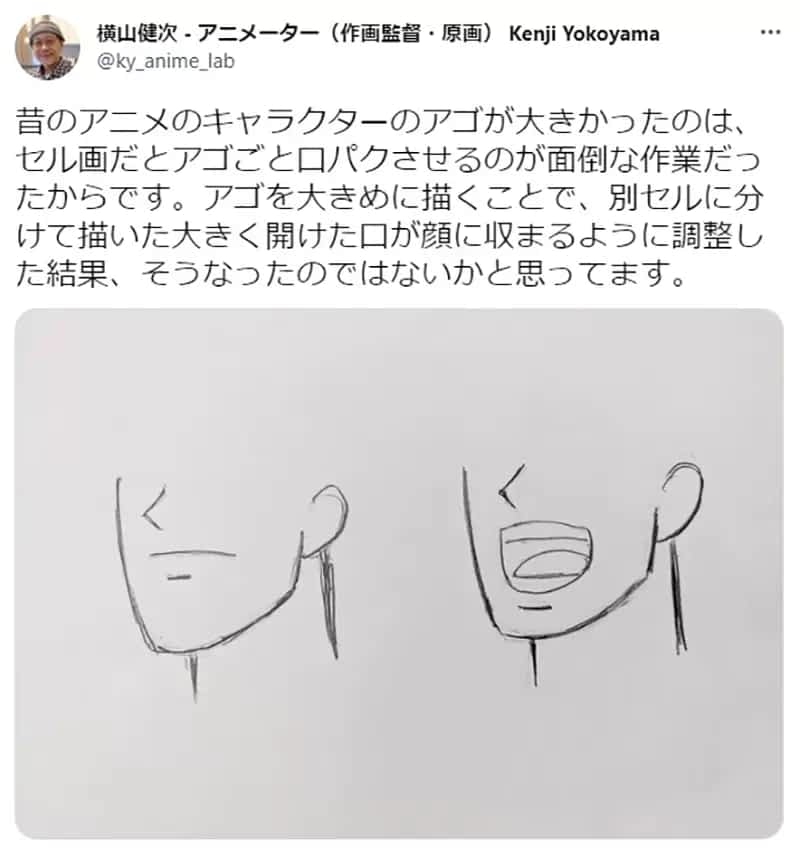 横山健次 - アニメーター（作画監督・原画） Kenji Yokoyama
@ky_anime_lab
昔のアニメのキャラクターのアゴが大きかったのは、
セル画だとアゴごと口パクさせるのが面倒な作業だっ
たからです。アゴを大きめに描くことで、別セルに分
けて描いた大きく開けた口が顔に収まるように調整し
た結果、そうなったのではないかと思ってます。